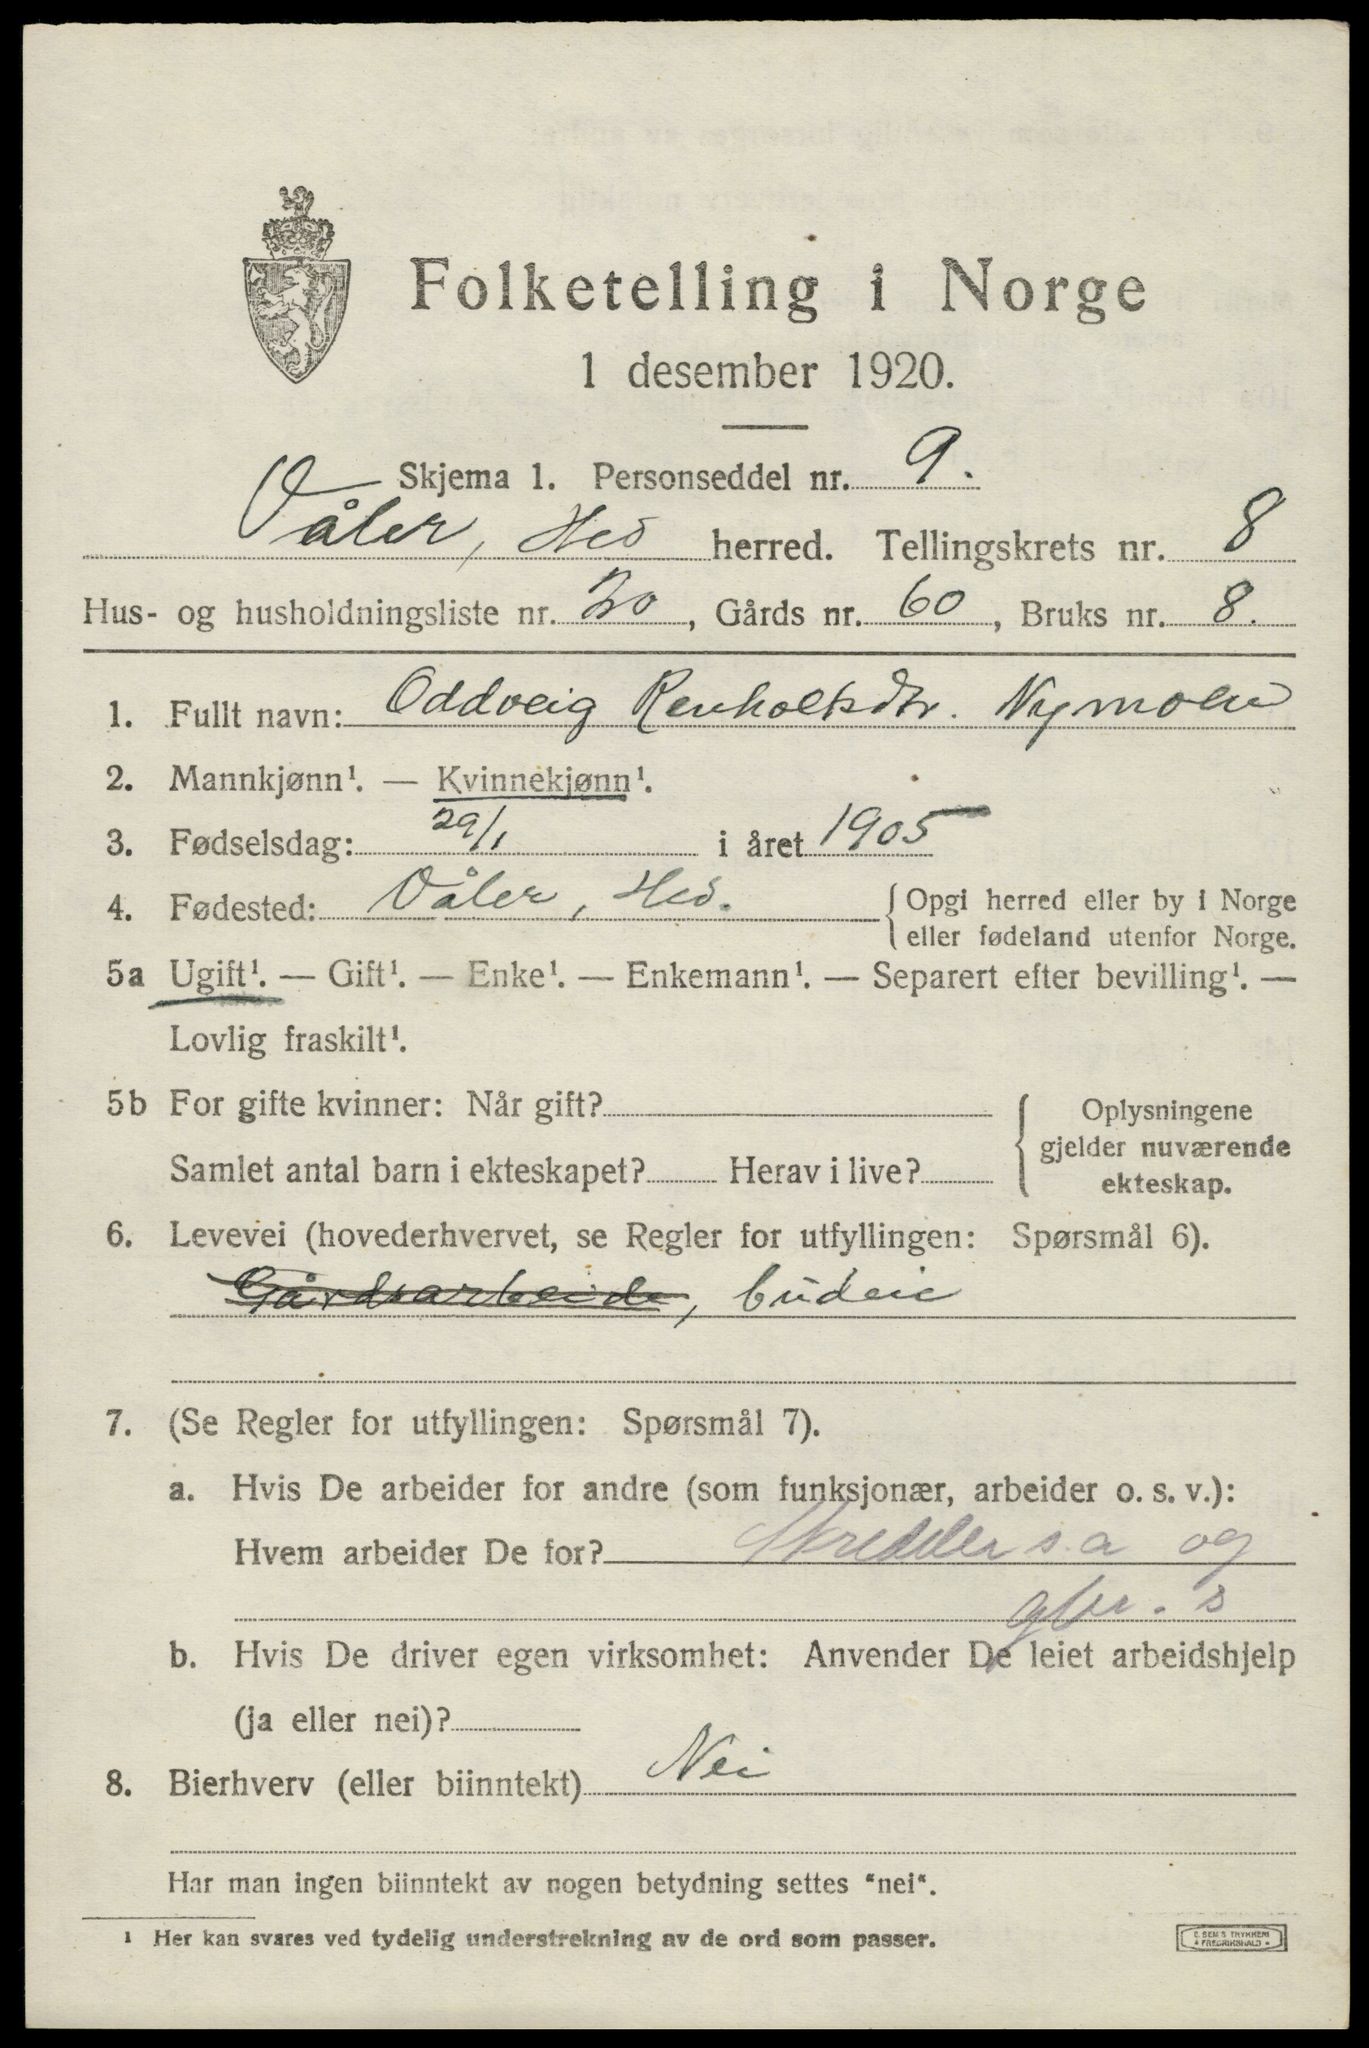 Folketelling i Norge
1 desember 1920.
Skjema 1. Personseddel nr. 9.
Våler, Hed herred. Tellingskrets nr. 8
Hus- og husholdningsliste nr. 20, Gårds nr. 60, Bruks nr. 8.
1. Fullt navn: Oddveig Renholtsdtr. Nymoen
2. Mannkjønn¹. — Kvinnekjønn¹.
3. Fødselsdag: 29/1 i året 1905
4. Fødested: Våler, Hed. { Opgi herred eller by i Norge
eller fødeland utenfor Norge.
5a Ugift¹. — Gift¹. — Enke¹. — Enkemann¹. — Separert efter bevilling¹. —
Lovlig fraskilt¹.
5b For gifte kvinner: Når gift? { Oplysningene
gjelder nuværende
Samlet antal barn i ekteskapet? Herav i live?
ekteskap.
6. Levevei (hovederhvervet, se Regler for utfyllingen: Spørsmål 6).
Gårdsarbeide, budeie
7. (Se Regler for utfyllingen: Spørsmål 7).
a. Hvis De arbeider for andre (som funksjonær, arbeider o. s. v.):
Hvem arbeider De for? Skredder s.a og
gbr. s
b. Hvis De driver egen virksomhet: Anvender De leiet arbeidshjelp
(ja eller nei)?
8. Bierhverv (eller biinntekt) Nei
Har man ingen biinntekt av nogen betydning settes "nei".
¹ Her kan svares ved tydelig understrekning av de ord som passer.
E. SEM'S TRYKKERI
FREDRIKSHALD